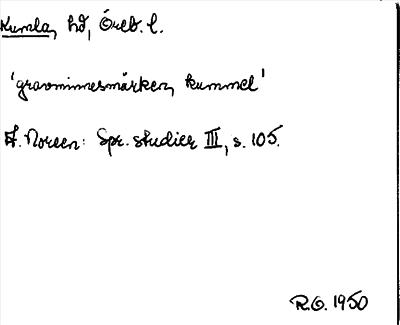 Kumla, hd, Öreb. l.
'gravminnesmärken, kummel'
A. Noreen: Spr. studier III, s. 105.
R.O. 1950